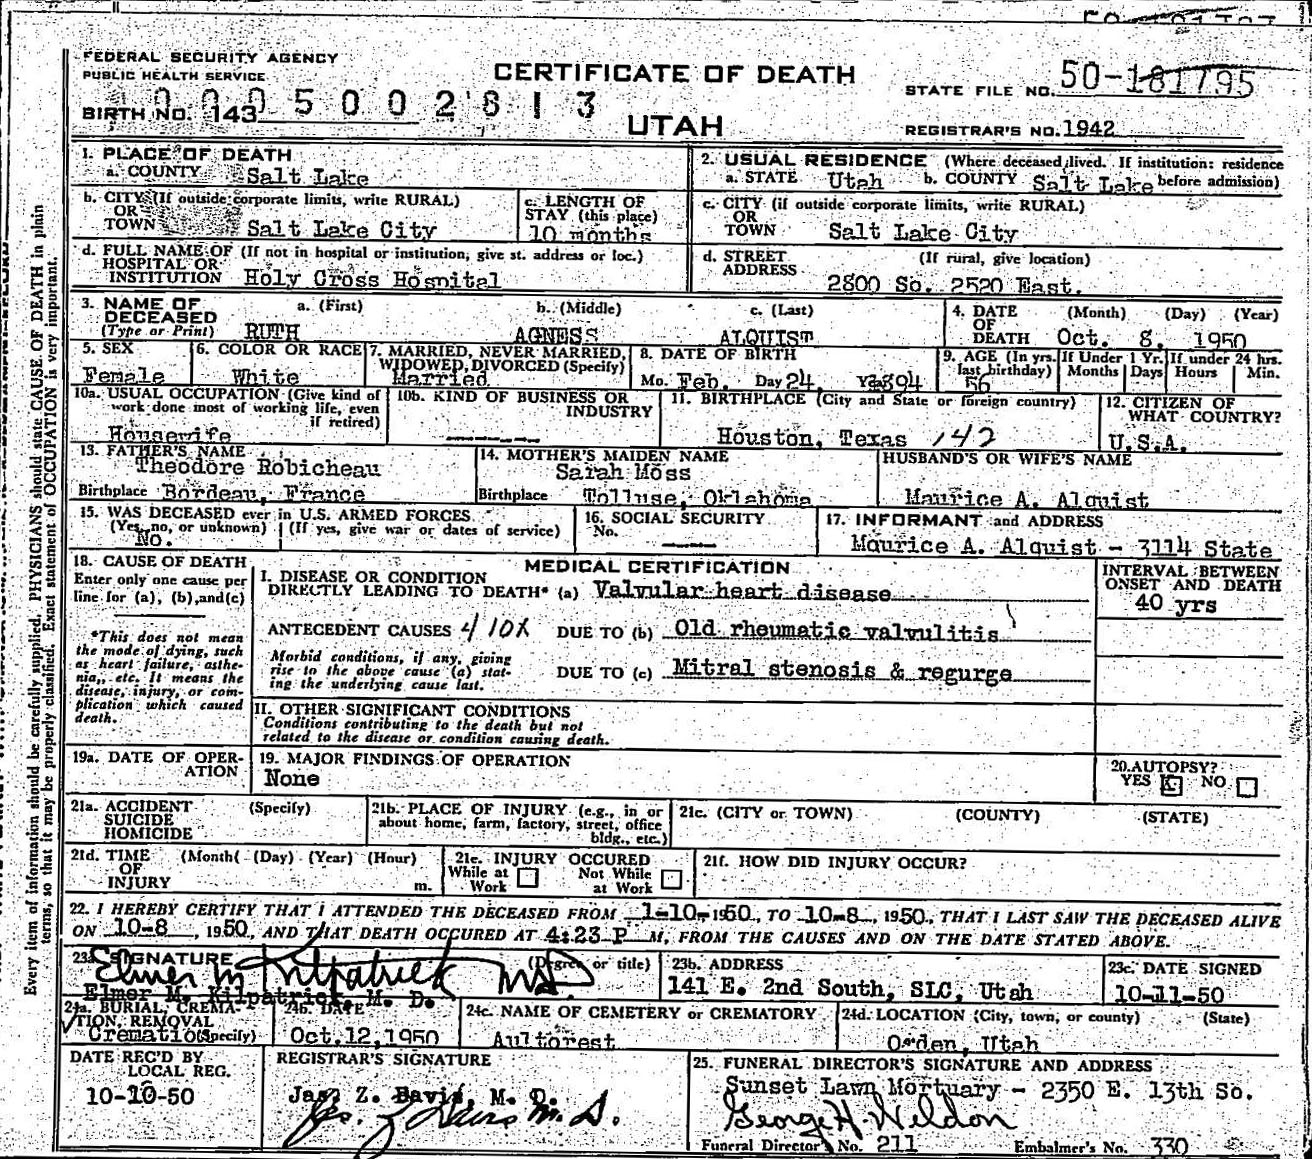 FEDERAL SECURITY AGENCY
PUBLIC HEALTH SERVICE
CERTIFICATE OF DEATH
UTAH
STATE FILE NO. 50-181795
BIRTH NO. 143
0005002613
REGISTRAR'S NO. 1942
1. PLACE OF DEATH
a. COUNTY Salt Lake
2. USUAL RESIDENCE (Where deceased lived. If institution: residence before admission)
a. STATE Utah b. COUNTY Salt Lake
b. CITY (If outside corporate limits, write RURAL) OR TOWN Salt Lake City
c. LENGTH OF STAY (this place) 10 months
c. CITY (if outside corporate limits, write RURAL) OR TOWN Salt Lake City
d. FULL NAME OF (If not in hospital or institution, give st. address or loc.) HOSPITAL OR INSTITUTION Holy Cross Hospital
d. STREET ADDRESS (If rural, give location) 2800 So. 2520 East.
3. NAME OF DECEASED (Type or Print) a. (First) b. (Middle) c. (Last)
RUTH AGNESS ALQUIST
4. DATE OF DEATH (Month) (Day) (Year) Oct. 8, 1950
5. SEX Female
6. COLOR OR RACE White
7. MARRIED, NEVER MARRIED, WIDOWED, DIVORCED (Specify) Married
8. DATE OF BIRTH Mo. Feb. Day 24, 1894
9. AGE (In yrs. last birthday) 56
If Under 1 Yr. Months Days
If under 24 hrs. Hours Min.
10a. USUAL OCCUPATION (Give kind of work done most of working life, even if retired) Housewife
10b. KIND OF BUSINESS OR INDUSTRY
11. BIRTHPLACE (City and State or foreign country) Houston, Texas 142
12. CITIZEN OF WHAT COUNTRY? U.S.A.
13. FATHER'S NAME Theodore Robicheau
Birthplace Bordeau, France
14. MOTHER'S MAIDEN NAME Sarah Moss
Birthplace Tolluse, Oklahoma
HUSBAND'S OR WIFE'S NAME
Maurice A. Alquist
15. WAS DECEASED ever in U.S. ARMED FORCES (Yes, no, or unknown) (If yes, give war or dates of service)
No.
16. SOCIAL SECURITY No.
17. INFORMANT and ADDRESS
Maurice A. Alquist - 3114 State
18. CAUSE OF DEATH
Enter only one cause per line for (a), (b), and (c)
*This does not mean the mode of dying, such as heart failure, asthenia, etc. It means the disease, injury, or complication which caused death.
MEDICAL CERTIFICATION
INTERVAL BETWEEN ONSET AND DEATH
40 yrs
I. DISEASE OR CONDITION DIRECTLY LEADING TO DEATH* (a) Valvular heart disease
ANTECEDENT CAUSES 410X DUE TO (b) Old rheumatic valvulitis
Morbid conditions, if any, giving rise to the above cause (a) stating the underlying cause last.
DUE TO (c) Mitral stenosis & regurge
II. OTHER SIGNIFICANT CONDITIONS
Conditions contributing to the death but not related to the disease or condition causing death.
19a. DATE OF OPERATION
19. MAJOR FINDINGS OF OPERATION
None
20. AUTOPSY?
YES NO
21a. ACCIDENT SUICIDE HOMICIDE (Specify)
21b. PLACE OF INJURY (e.g., in or about home, farm, factory, street, office bldg., etc.)
21c. (CITY or TOWN) (COUNTY) (STATE)
21d. TIME OF INJURY (Month( (Day) (Year) (Hour) m.
21e. INJURY OCCURED While at Work Not While at Work
21f. HOW DID INJURY OCCUR?
22. I HEREBY CERTIFY THAT I ATTENDED THE DECEASED FROM 1-10-1950, TO 10-8, 1950, THAT I LAST SAW THE DECEASED ALIVE
ON 10-8, 1950, AND THAT DEATH OCCURED AT 4:23 P M, FROM THE CAUSES AND ON THE DATE STATED ABOVE.
23a. SIGNATURE (Degree or title)
Elmer M Kilpatrick MD.
Elmer M. Kilpatrick, M. D.
23b. ADDRESS
141 E. 2nd South, SLC, Utah
23c. DATE SIGNED
10-11-50
24a. BURIAL, CREMATION, REMOVAL (Specify) Cremation
24b. DATE Oct. 12, 1950
24c. NAME OF CEMETERY or CREMATORY Aultorest
24d. LOCATION (City, town, or county) (State) Ogden, Utah
DATE REC'D BY LOCAL REG.
10-10-50
REGISTRAR'S SIGNATURE
Jas. Z. Davis, M. D.
Jas. Z Davis M.D.
25. FUNERAL DIRECTOR'S SIGNATURE AND ADDRESS
Sunset Lawn Mortuary - 2350 E. 13th So.
George H. Weldon
Funeral Director's No. 211 Embalmer's No. 330
Every item of information should be carefully supplied. PHYSICIANS should state CAUSE OF DEATH in plain
terms, so that it may be properly classified. Exact statement of OCCUPATION is very important.